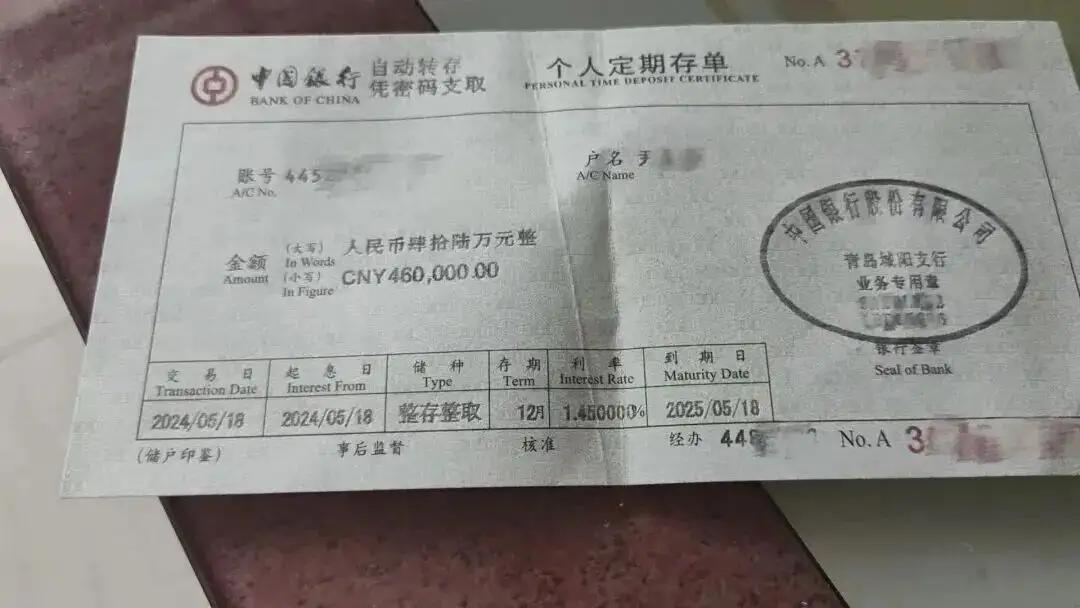 中国银行
BANK OF CHINA
自动转存
凭密码支取
个人定期存单
PERSONAL TIME DEPOSIT CERTIFICATE
No. A 3
账号 445
A/C No.
户名
A/C Name
金额
Amount
(大写) 人民币肆拾陆万元整
In Words
(小写) CNY460,000.00
In Figure
中国银行股份有限公司
青岛城阳支行
业务专用章
银行签章
Seal of Bank
交易日 起息日 储种 存期 利率 到期日
Transaction Date Interest From Type Term Interest Rate Maturity Date
2024/05/18 2024/05/18 整存整取 12月 1.450000% 2025/05/18
(储户印鉴) 事后监督 核准 经办 448 No. A 3